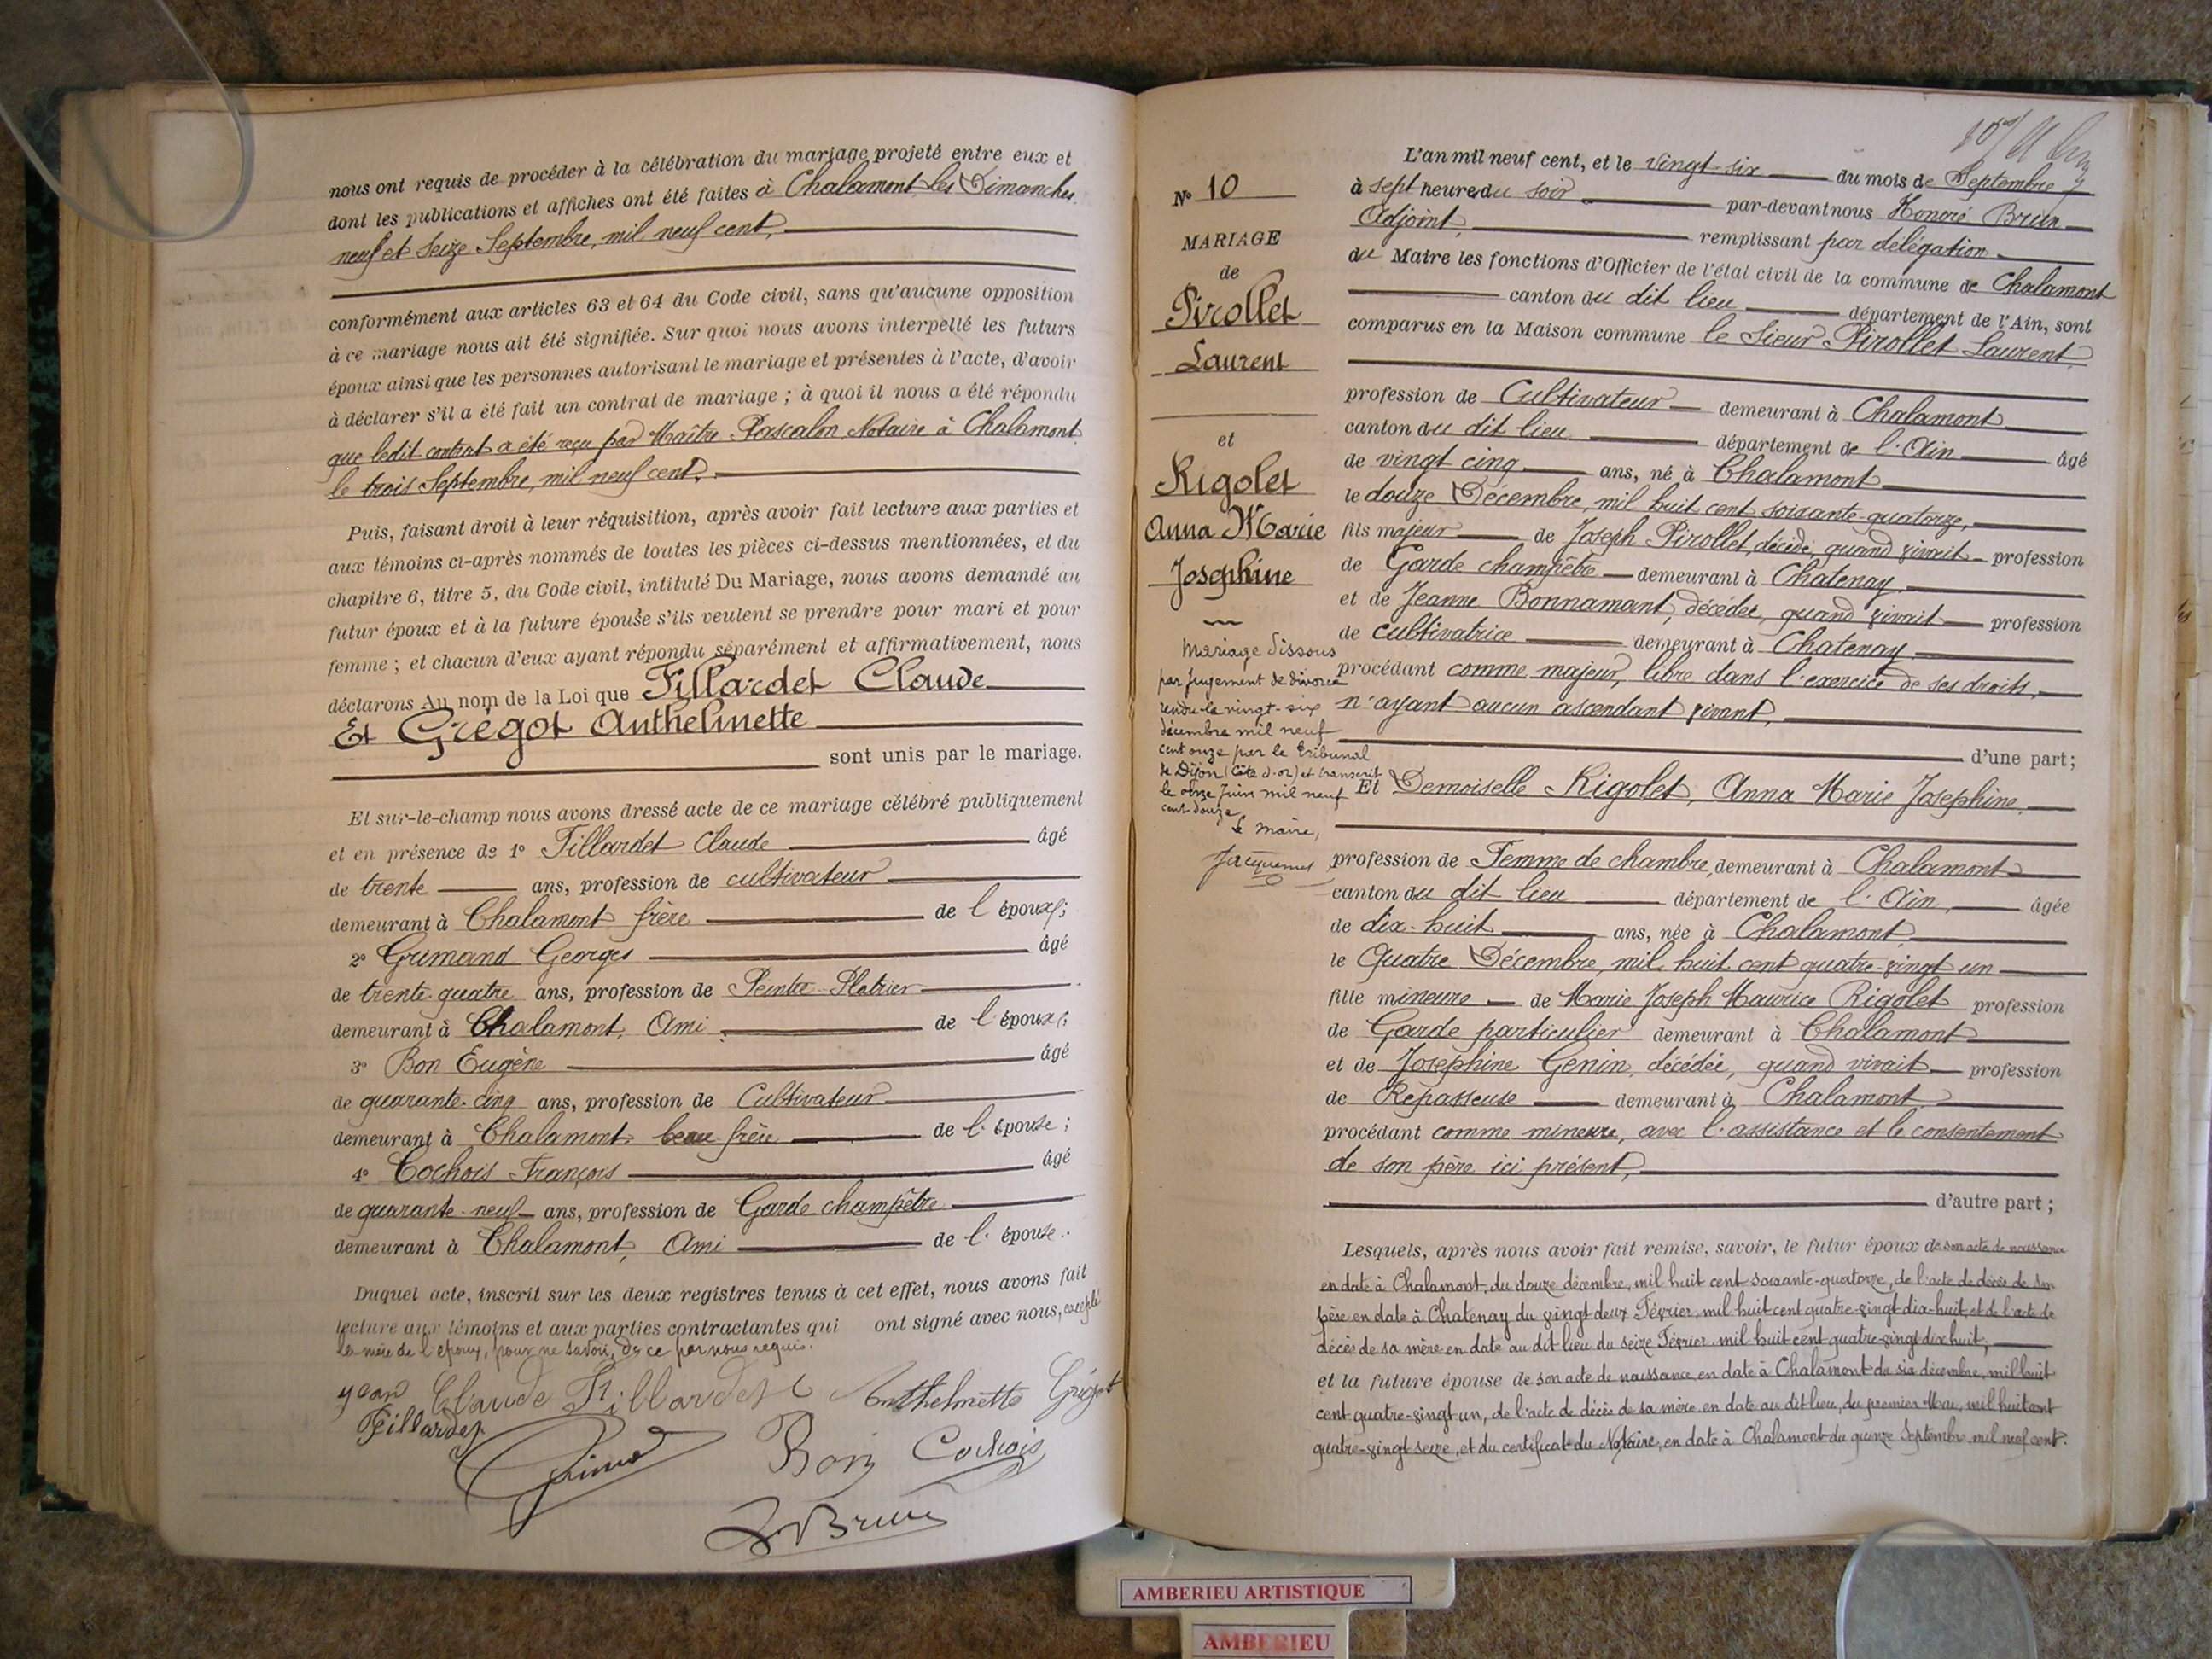 nous ont requis de procéder à la célébration du mariage projeté entre eux et
dont les publications et affiches ont été faites à Chalamont les Dimanches
neuf et seize Septembre, mil neuf cent,
conformément aux articles 63 et 64 du Code civil, sans qu'aucune opposition
à ce mariage nous ait été signifiée. Sur quoi nous avons interpellé les futurs
époux ainsi que les personnes autorisant le mariage et présentes à l'acte, d'avoir
à déclarer s'il a été fait un contrat de mariage ; à quoi il nous a été répondu
que ledit contrat a été reçu par Maître Pascalon Notaire à Chalamont
le trois Septembre, mil neuf cent.
Puis, faisant droit à leur réquisition, après avoir fait lecture aux parties et
aux témoins ci-après nommés de toutes les pièces ci-dessus mentionnées, et du
chapitre 6, titre 5, du Code civil, intitulé Du Mariage, nous avons demandé au
futur époux et à la future épouse s'ils veulent se prendre pour mari et pour
femme ; et chacun d'eux ayant répondu séparément et affirmativement, nous
déclarons Au nom de la Loi que Fillardet Claude
Et Grégot Anthelmette
sont unis par le mariage.
Et sur-le-champ nous avons dressé acte de ce mariage célébré publiquement
et en présence de 1° Fillardet Claude âgé
de trente ans, profession de cultivateur
demeurant à Chalamont frère de l'époux;
2° Grimand Georges âgé
de trente-quatre ans, profession de Peintre-Platrier
demeurant à Chalamont, Ami de l'époux;
3° Bon Eugène âgé
de quarante-cinq ans, profession de Cultivateur
demeurant à Chalamont beau frère de l'épouse;
4° Cochois François âgé
de quarante-neuf ans, profession de Garde champêtre
demeurant à Chalamont, Ami de l'épouse.
Duquel acte, inscrit sur les deux registres tenus à cet effet, nous avons fait
lecture aux témoins et aux parties contractantes qui ont signé avec nous, excepté
la mère de l'époux, pour ne savoir, de ce par nous requis.
Claude Fillardet Anthelmette Grégot
Fillardet
Bon Cochois
Brun
N° 10
MARIAGE
de
Pirollet
Laurent
et
Rigolet
Anna Marie
Josephine
Mariage dissous
par jugement de divorce
rendu le vingt-six
décembre mil neuf
cent onze par le tribunal
de Dijon (Côte d'or) et transcrit
le onze Juin mil neuf
cent douze
Le maire,
L'an mil neuf cent, et le vingt-six du mois de Septembre
à sept heure du soir par-devant nous Honoré Brun
Adjoint, remplissant par délégation
du Maire les fonctions d'Officier de l'état civil de la commune de Chalamont
canton du dit lieu département de l'Ain, sont
comparus en la Maison commune le Sieur Pirollet Laurent
profession de Cultivateur demeurant à Chalamont
canton du dit lieu département de l'Ain âgé
de vingt cinq ans, né à Chalamont
le douze Décembre, mil huit cent soixante-quatorze,
fils majeur de Joseph Pirollet, décédé, quand vivait profession
de Garde champêtre demeurant à Chatenay
et de Jeanne Bonnamant, décédée, quand vivait profession
de cultivatrice demeurant à Chatenay
procédant comme majeur, libre dans l'exercice de ses droits,
n'ayant aucun ascendant vivant,
d'une part;
Et Demoiselle Rigolet, Anna Marie Josephine,
profession de Femme de chambre, demeurant à Chalamont
canton du dit lieu département de l'Ain, âgée
de dix-huit ans, née à Chalamont
le Quatre Décembre, mil huit cent quatre-vingt un
fille mineure de Marie Joseph Maurice Rigolet profession
de Garde particulier demeurant à Chalamont
et de Josephine Genin, décédée, quand vivait profession
de Repasseuse demeurant à Chalamont
procédant comme mineure, avec l'assistance et le consentement
de son père ici présent,
d'autre part ;
Lesquels, après nous avoir fait remise, savoir, le futur époux de son acte de naissance
en date à Chalamont, du douze décembre, mil huit cent soixante-quatorze, de l'acte de décès de son
père en date à Chatenay du vingt deux Février, mil huit cent quatre-vingt dix-huit, et de l'acte de
décès de sa mère en date au dit lieu du seize Février mil huit cent quatre-vingt dix huit,
et la future épouse de son acte de naissance, en date à Chalamont du six décembre, mil huit
cent quatre-vingt un, de l'acte de décès de sa mère en date au dit lieu, du premier Mai, mil huit cent
quatre-vingt seize, et du certificat du Notaire, en date à Chalamont du quinze Septembre mil neuf cent.
AMBERIEU ARTISTIQUE
AMBERIEU